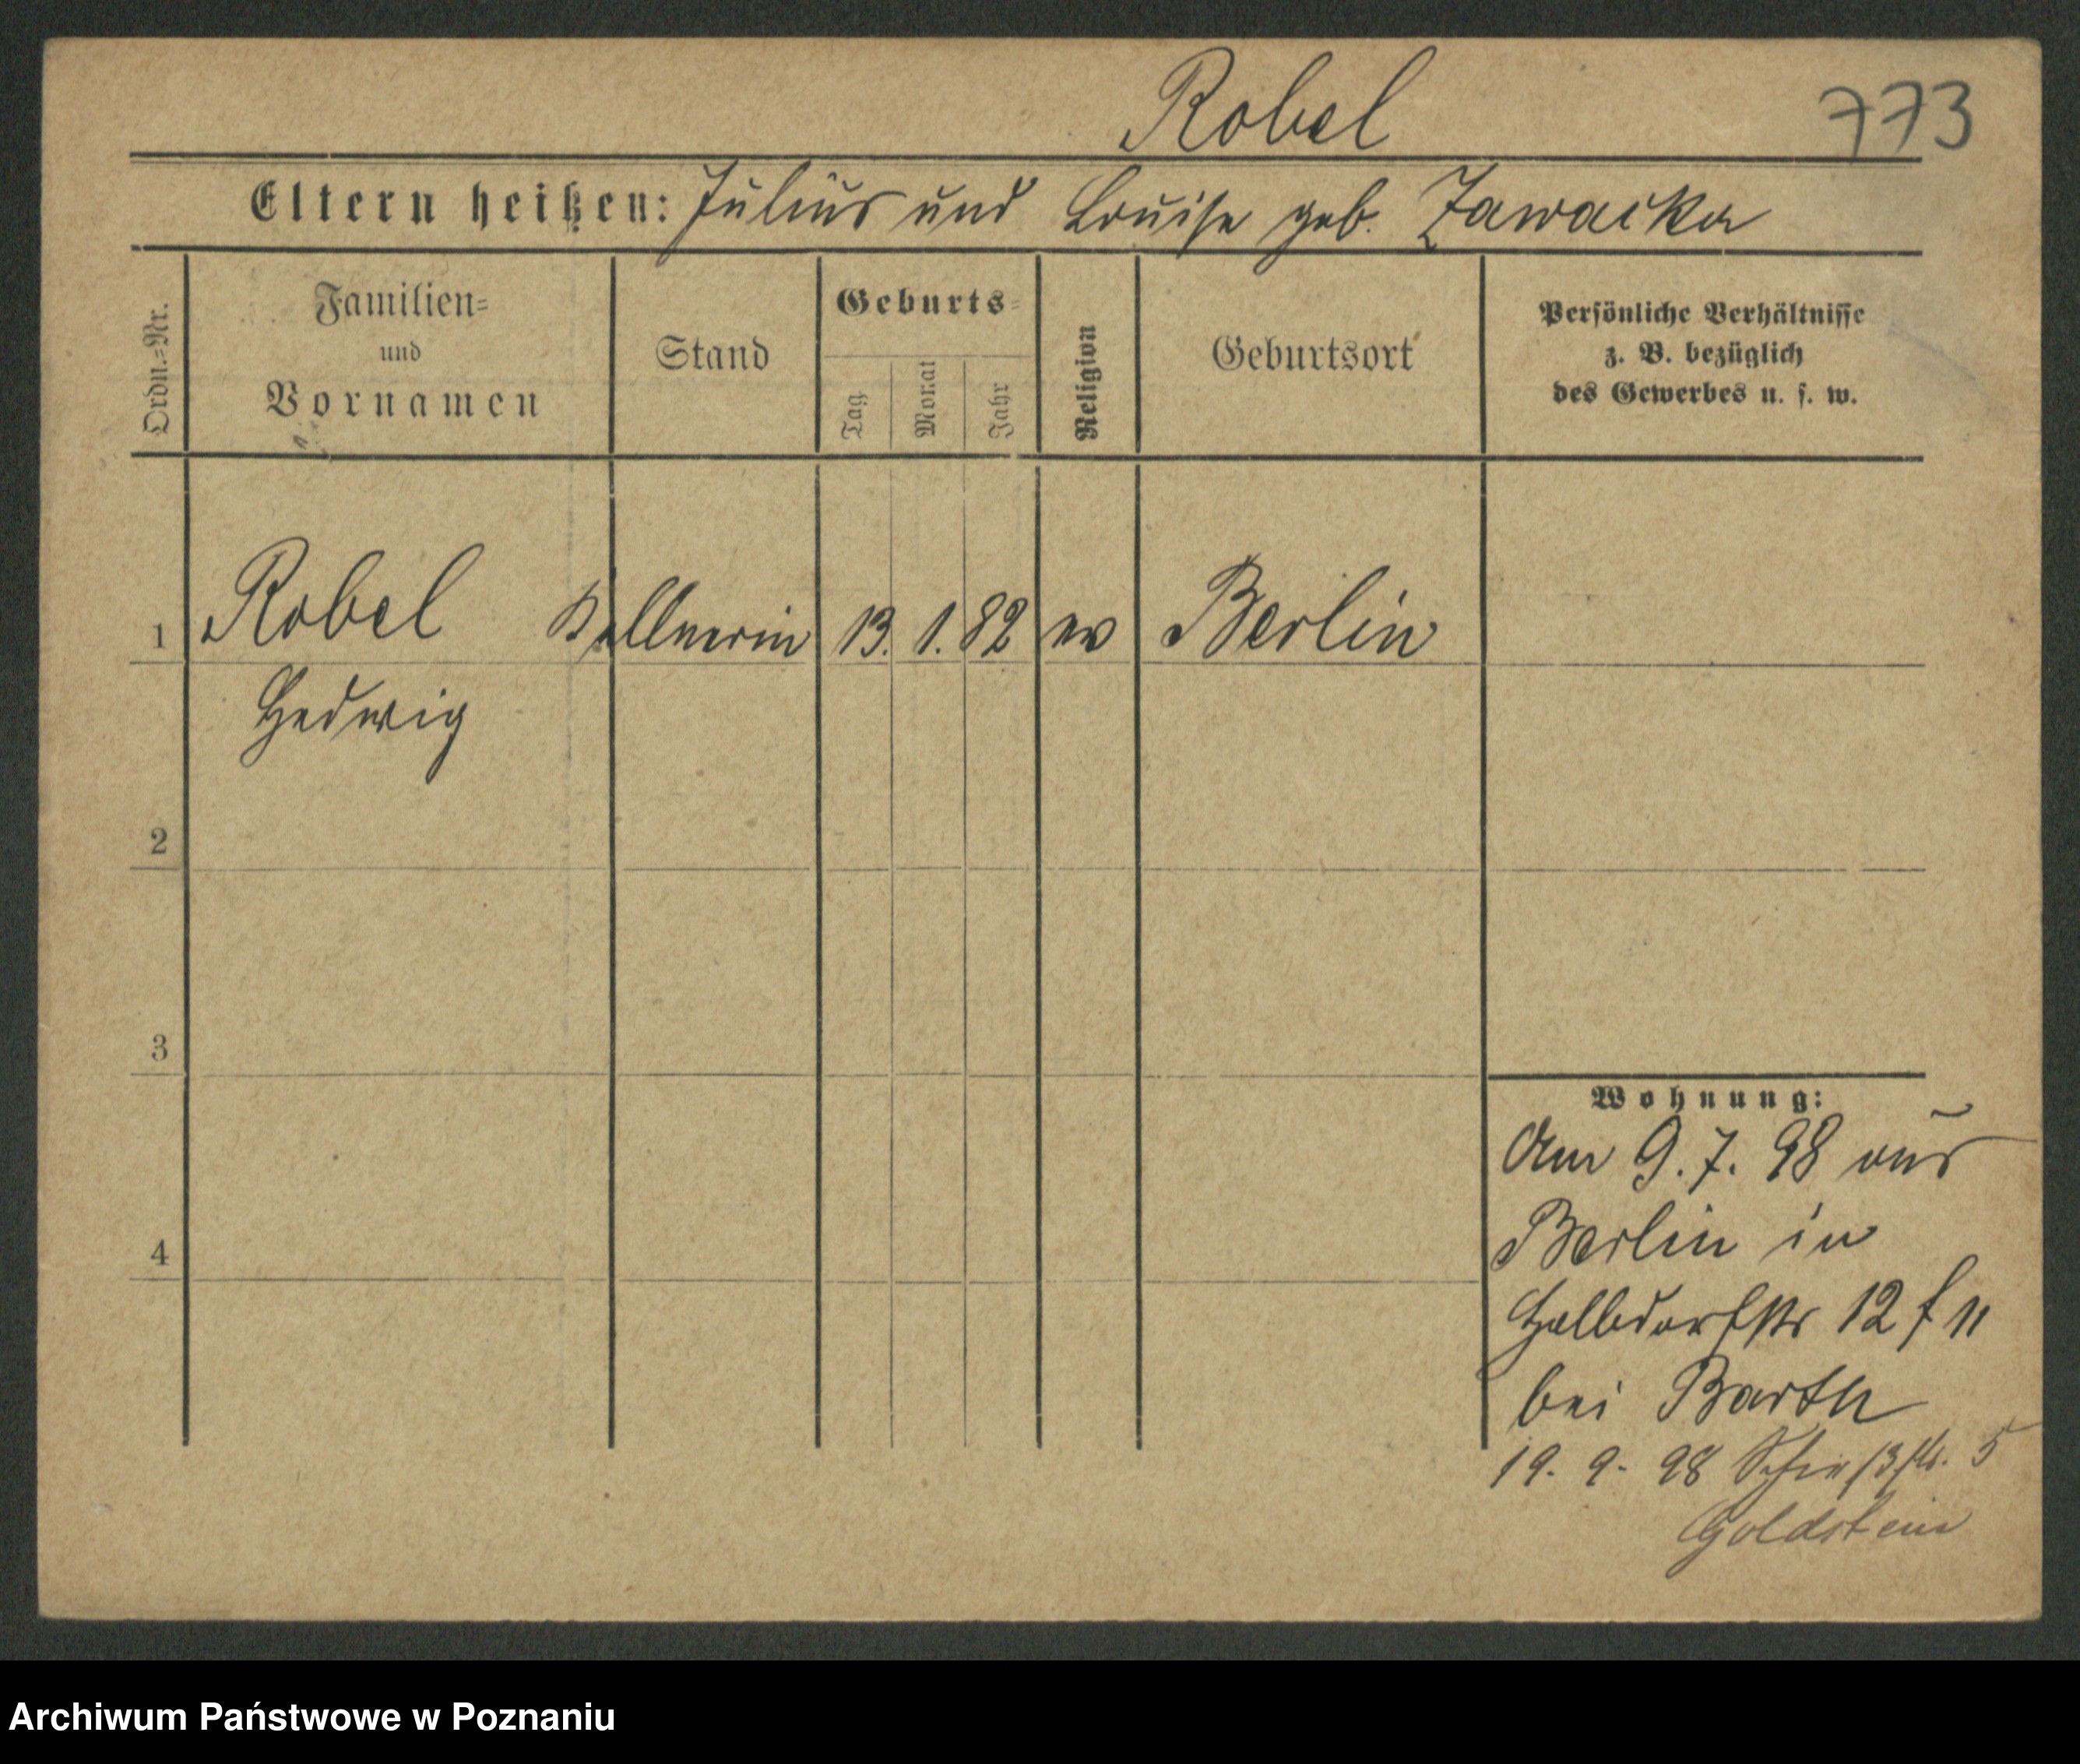 Robel
773
Eltern heißen: Julius und Louise geb. Zawacka
Ordn.=Nr.
Familien=
und
Vornamen
Stand
Geburts=
Tag
Monat
Jahr
Religion
Geburtsort
Persönliche Verhältnisse
z. B. bezüglich
des Gewerbes u. s. w.
1 Robel Kellnerin 13. 1. 82 ev Berlin
Hedwig
2
3
4
Wohnung:
Am 9. 7. 98 aus
Berlin in
Halbdorfstr 12 f 11
bei Barth
19. 9. 98 Schießstr. 5
Goldstein
Archiwum Państwowe w Poznaniu